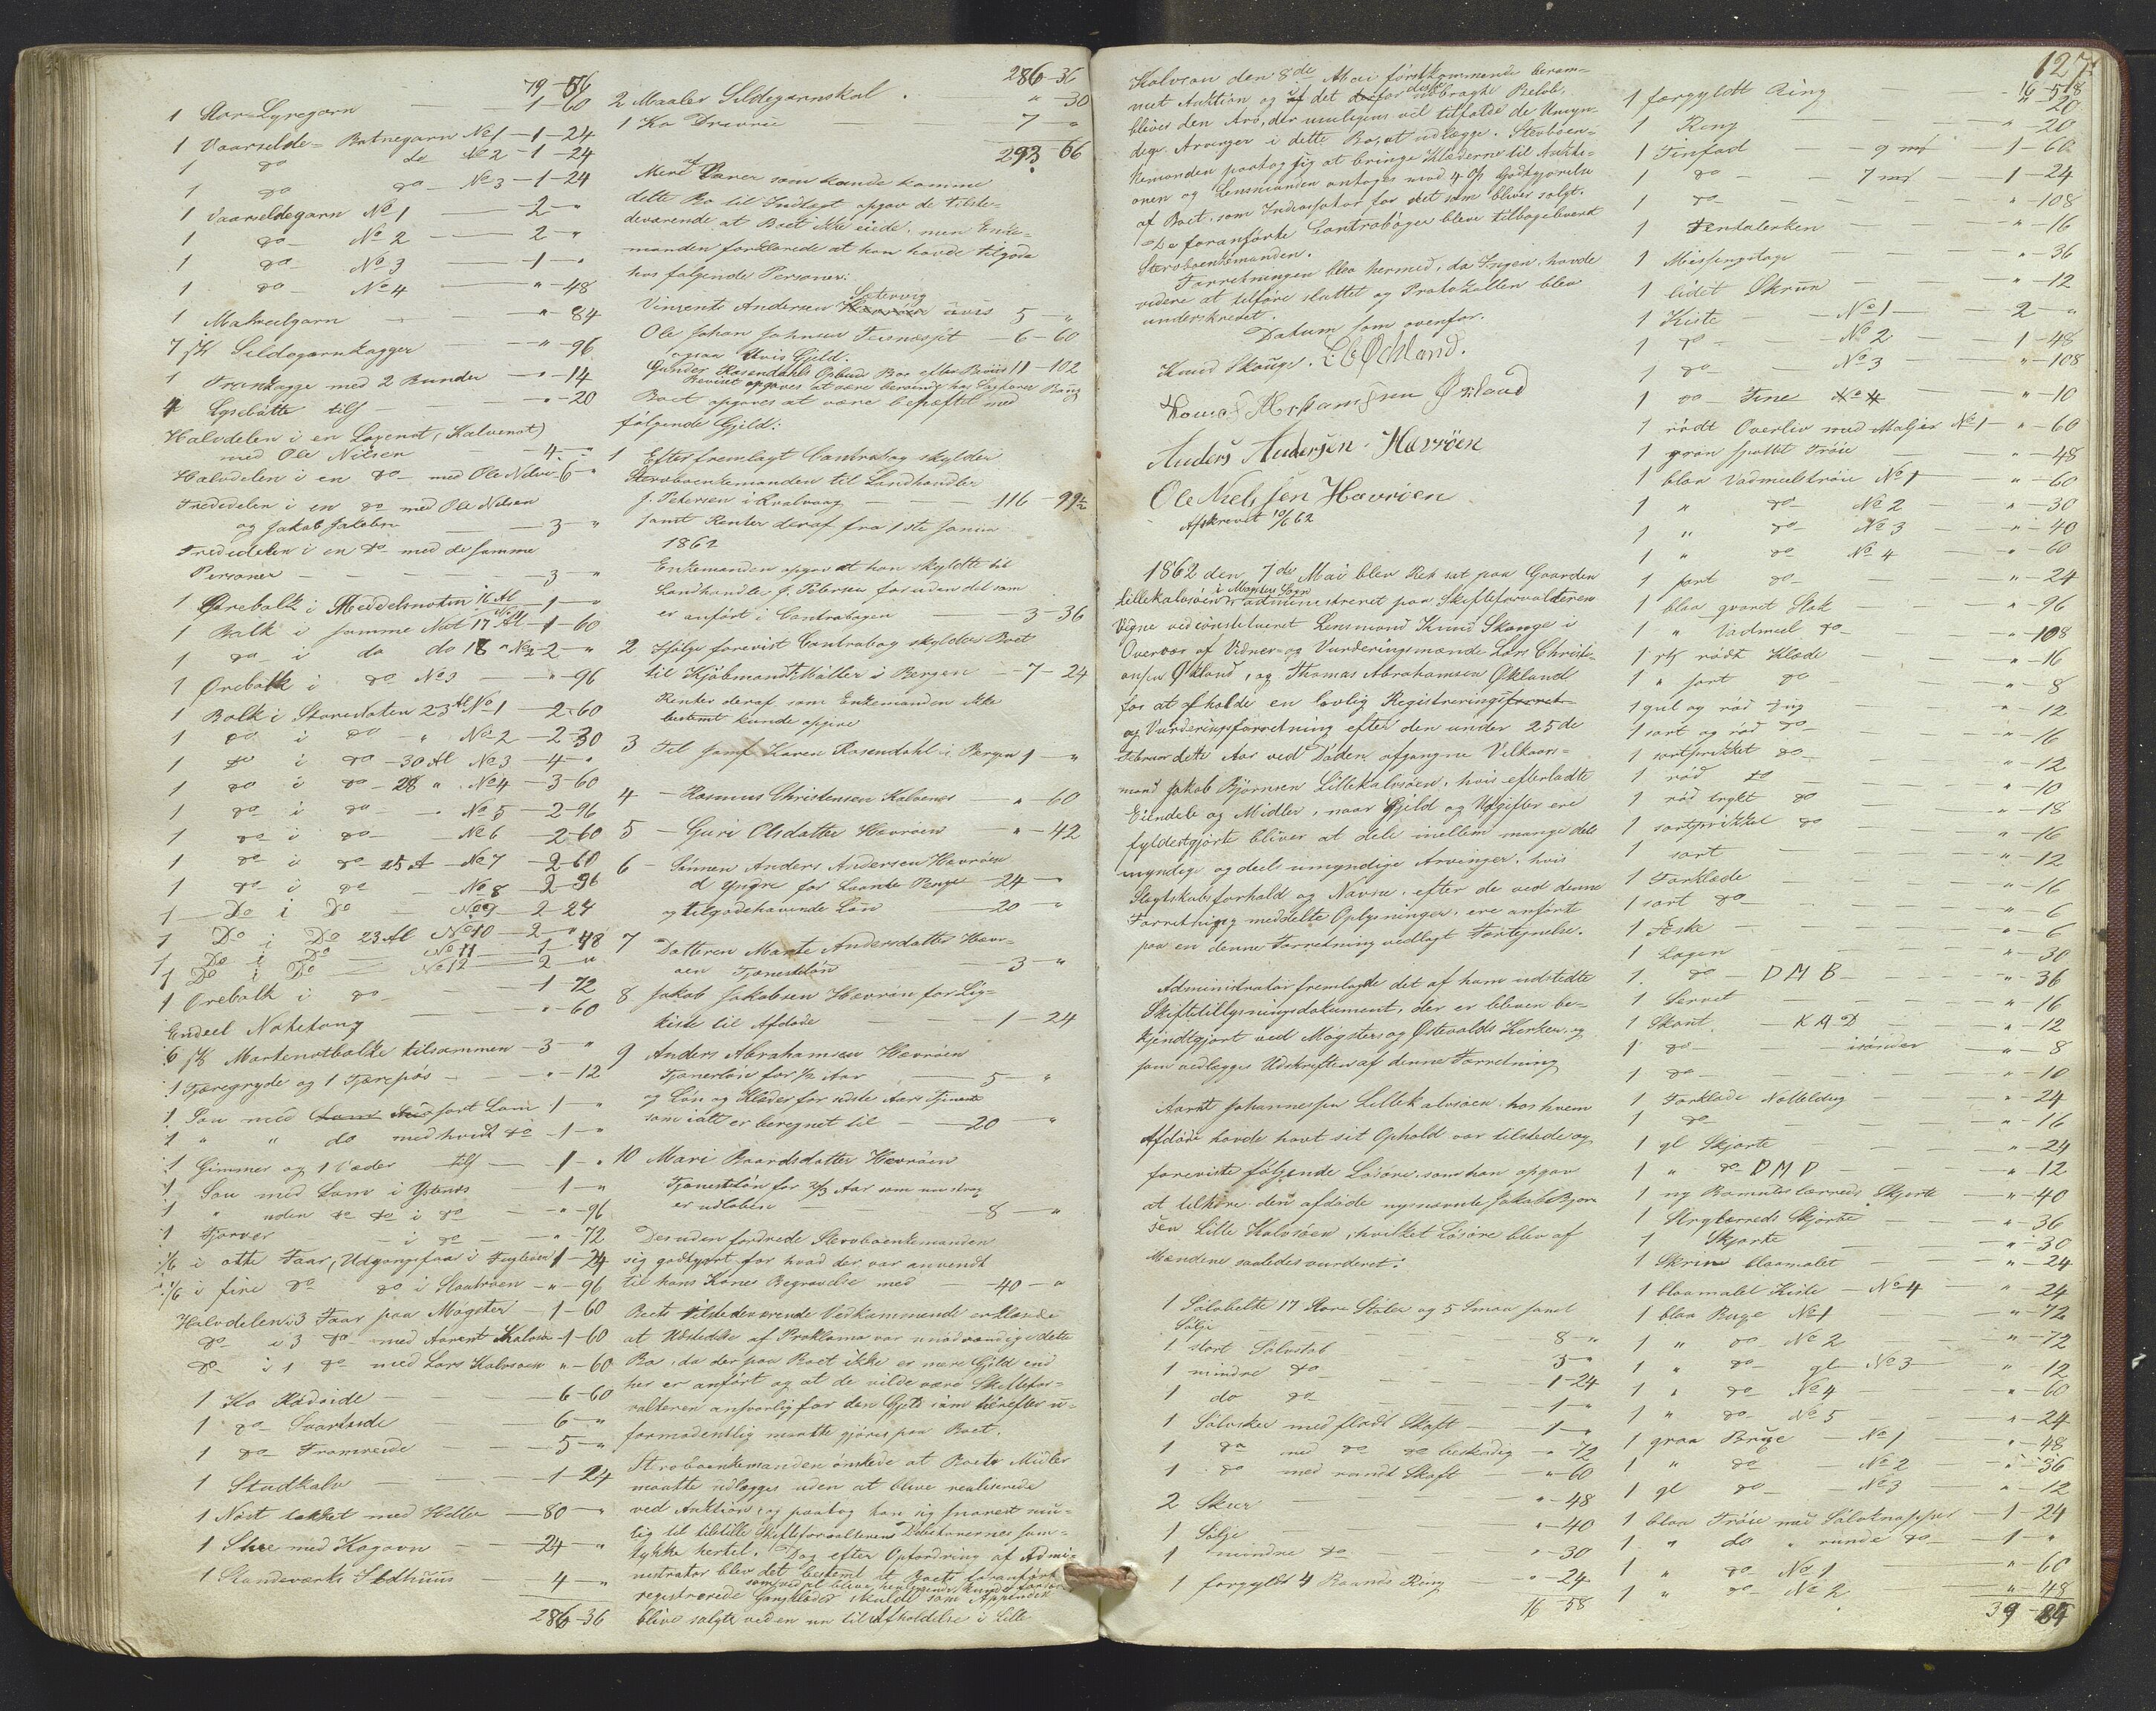 79-56
1 Stor-Lyregarn — 1-60
1 Vaarselde-Botnegarn No 1 — 1-24
1 do do No 2 — 1-24
1 do do No 3 — 1-24
1 Vaarseldegarn No 1 — 2 - "
1 do No 2 — 2 - "
1 do No 3 — 1 - "
1 do No 4 — " - 48
1 Makrelgarn — " - 84
7 stk Sildegarnkagger — " - 96
1 Trankagge med 2 Bunder — " - 14
4 Lysebøtte tils — " - 20
Halvdelen i en Laxenot, (Kalvenot)
med Ole Nilsen — 4 - "
Halvdelen i en do med Ole Nilsen - 6 - "
Trededelen i en do med Ole Nilsen
og Jakob Jakobsen — 3 - "
Trededelen i en do med de samme
Personer — 3 - "
1 Ørebolk i Meddelsnoten 16 Al — 1 - "
1 Bolk i samme Not 17 Al No 1 — 1-60
1 do i do do 18 " No 2 - 2 - "
1 Ørebolk i do No 3 — " - 96
1 Bolk i Storenoten 23 Al No 1 — 2-60
1 do i do " No 2 — 2-30
1 do i do - 30 Al No 3 — 4 - "
1 do i do - 28 " No 4 — 3-60
1 do i do - No 5 — 2-96
1 do i do No 6 — 2-60
1 do i do 25 A No 7 — 2-60
1 do i do - No 8 — 2-96
1 Do i Do — No 9 — 2-24
1 Do i Do 23 Al No 10 — 2 - "
1 Do i Do — No 11 — 1-48
1 Do i Do — No 12 — 2 - "
1 Ørebolk i do — 1-72
Endeel Notetoug — " - 60
6 stk Mortenotbolke tilsammen — 3 - "
1 Tjæregryde og 1 Tjærepøs — " - 12
1 Sou med sort Lam 1 - "
1 " " do med hvidt do - 1 - "
1 Gimmer og 1 Væder tils — 1 - "
1 Sou med Lam i Ystenes — 1 - "
1 " uden do do i do — " - 96
1 Tjorver — i do — " - 72
1/6 i otte Faar, Udgangsfaar i Fugleøen 1-24
1/6 i fire do do i Slaatrøen - " - 96
Halvdelen i 3 Faar paa Møgster — 1-60
do i 3 do med Aarent Kalvøen -1-60
do i 1 do med Lars Kalvøen " - 60
1 Ko Rødside — 6-60
1 do Svartside — 6 - "
1 do Framreide — 5 - "
1 Studkalv — 1-24
1 Nøst takket med Heller — 80 - "
1 Stue med Kogovn — 24 - "
1 Standeværks Ildhuus — 4 - "
286-36

286-36
2 Maaler Sildegarnskal . " - 30
1 Ko Drivrei — 7 - "
293-66
Mere af Varer som kunde komme
dette Bo til Indtægt opgav de tilste-
deværende at Boet ikke eiede, men Enke-
manden forklarede at han havde tilgode
hos følgende Personer:
Vinsents Andersen Sætervig uvis 5 - "
Ole Johan Johnsen Teisnesset — 6-60
ogsaa Uvis Gjeld.
Gunder Rosendahls Opbud Bo efter Beviis 11-102
Beviset opgaves at være beroende hos Sagfører Boug
Boet opgaves at være behæftet med
følgende Gjeld:
1 Efter fremlagt Contrabog skylder
Stervboenkemanden til Landhandler
J. Petersen i Kvalvaag — 116-99½
samt Renter deraf fra 1ste Januar
1862
Enkemanden opgav at han skyldte til
Landhandler J. Petersen foruden det som
er anført i Contrabogen — 3-36
2 Ifølge forevist Contrabog skylder Boet
til Kjøbmand Møller i Bergen — 7-24
Renter deraf som Enkemanden ikke
bestemt kunde opgive
3 Til Jomf. Karen Rosendahl i Bergen 1 - "
4 - Rasmus Christensen Kalvenes — " - 60
5 - Guri Olsdatter Hevrøen — " - 42
6 - Sønnen Anders Andersen Hevrøen
d yngre for Laante Penge 24 - "
og tilgodehavende Løn — 20 - "
7 Datteren Marte Andersdatter Hevr-
øen Tjenesteløn — 3 - "
8 Jakob Jakobsen Hevrøen for Lig-
kiste til Afdøde — 1-24
9 Anders Abrahamsen Hevrøen
Tjenesteløn for ½ Aar — 5 - "
og Løn og Klæder for sidste Aars Tjeneste
som i alt er beregnet til — 20 - "
10 Mari Baardsdatter Hevrøen
Tjenesteløn for 2/3 Aar som nu strax
er udløben — 8 - "
Desuden fordrede Stervboenkemanden
sig godtgjort for hvad der var anvendt
til hans Kones Begravelse med — 40 - "
Boets tilstedeværende Vedkommende erklærede
at Udstedelse af Proklama var unødvendig i dette
Bo, da der paa Boet ikke er mere Gjeld end
her er anført og at de vilde være Skiftefor-
valteren ansvarlig for den Gjeld som herefter u-
formodentlig maatte gjøres paa Boet.
Stervboenkemanden ønskede at Boets Midler
maatte udlægges uden at blive realiserede
ved Auktion, og paatog han sig snarest mu-
lig til tilstille Skifteforvalteren Debitorernes Sam-
tykke hertil. Dog efter Opfordring af Admi-
nistrator blev det bestemt at Boets foranførte
registrerede Gangklæder skulde som Appendix
blive solgte ved en nu til Afholdelse i Lille

Kalvøen den 8de Mai førstkommende beram-
met Auktion og af det derfor udbragte Beløb,
bliver den Arv, der muligens vil tilfalde de Umyn-
dige Arvinger i dette Bo, at udlægge. Stervboen-
kemanden paatog sig at bringe Klæderne til Auktio-
nen og Lensmanden antoges mod 4 % Godtgjørelse
af Boet, som Indcassator for det som bliver solgt.
De foranførte Contrabøger bleve tilbageleveret
Stervboenkemanden.
Forretningen blev hermed, da Ingen havde
videre at tilføre sluttet og Protokollen blev
underskrevet.
Datum som ovenfor.
Knud Skouge. L. C. Øckland.
Tomas Abrahamsen Økland
Anders Andersen Hævrøen
Ole Nielssen Hævrøen
Afskrevet 10/6 62

1862 den 7de Mai blev Ret sat paa Gaarden
Lillekalvsøen i Møgster Sogn administreret paa Skifteforvalterens
Vegne ved constitueret Lensmand Knud Skouge i
Overvær af Vidner og Vurderingsmænde Lars Christi-
ansen Økland, og Thomas Abrahamsen Økland
for at afholde en lovlig Registrerings
og Vurderingsforretning efter den under 25de
Februar dette Aar ved Døden afgangne Vilkaars-
mand Jakob Bjørnsen Lillekalvsøen, hvis efterladte
Eiendele og Midler, naar Gjeld og Udgifter ere
fyldestgjorte bliver at dele mellem mange dels
myndige og deels umyndige Arvinger, hvis
Slegtskabsforhold og Navne, efter de ved denne
Forretning meddelte Oplysninger, ere anført
paa en denne Forretning vedlagt Fortegnelse.
Administrator fremlagde det af ham udstedte
Skiftetillysningsdokument, der er bleven be-
kjendtgjort ved Møgsters og Østevolds Kirker, og
som vedlægges Udskriften af denne Forretning
Aarnt Johannessen Lillekalvsøen hos hvem
Afdøde havde havt sit Ophold var tilstede og
foreviste følgende Løsøre, som han opgav
at tilhøre den afdøde nysnævnte Jakob Bjørn
sen Lille Kalvsøen, hvilket Løsøre blev af
Mændene saaledes vurderet:
1 Sølvbelte 17 Store Støler og 5 Smaa samt
Sølje — 8 - "
1 stort Sølvstob — 3 - "
1 mindre do — 1-24
1 do do — 1 - "
1 Sølvske med fladt Skaft — 1 - "
1 do med do do beskadig — " - 72
1 do med rundt Skaft — " - 60
2 Skeer — " - 48
1 Sølje — " - 40
1 mindre do — " - 30
1 forgyldt 4 Baands Ring — " - 24
16-58

127
16-58
1 forgyldt Ring — " - 20
1 Ring — " - 20
1 Tinfad — 9 mk — 1-60
1 do — 7 mk — 1-24
1 do — " - 108
1 Tentalerken — " - 16
1 Messingstage — " - 36
1 lidet Skrin — " - 12
1 Kiste — No 1 — 2 - "
1 do — No 2 — 1-48
1 do — No 3 — " - 108
1 do Tine — " - 10
1 rødt Overliv med Maljer No 1 — " - 60
1 grøn spottet Trøie — " - 48
1 blaa Vadmelstrøie No 1 — " - 60
1 " do No 2 — " - 30
1 " do No 3 — " - 40
1 " do No 4 — " - 60
1 sort do — " - 24
1 blaa qvoret Stak — " - 96
1 " Vadmeel do — " - 108
1 stk rødt Klæde — " - 16
1 " sort do — " - 8
1 gul og rød — " - 12
1 sort og rød do — " - 16
1 sortprikket do — " - 12
1 rød do — " - 10
1 rød trykt do — " - 18
1 sortprikket do — " - 16
1 sort — " - 12
1 Forklæde — " - 16
1 sort do — " - 6
1 Æske — " - 6
1 Lagen — " - 30
1 do — D M B — " - 36
1 Serviet — " - 16
1 Skout — K A D — " - 12
1 do — isønder — " - 8
1 do — " - 10
1 Forklæde Netteldug — " - 24
1 do — " - 16
1 gl Skjorte — " - 24
1 " do D M D — " - 12
1 ny Bomuldslærreds Skjorte — " - 40
1 Strylærreds Skjorte — " - 36
1 Skjorte — " - 30
1 Skrin blaamalet — " - 24
1 blaamalet Kiste — No 4 — " - 24
1 blaa Buxe No 1 — " - 72
1 " do No 2 — " - 72
1 " do gl No 3 — " - 12
1 " do No 4 — " - 60
1 " do No 5 — " - 24
1 graa Buxe — No 1 — " - 48
1 " do — No 2 — " - 36
1 gl do — No 3 — " - 12
1 blaa Trøie med Sølvknapper — 1-24
1 " do " runde do — 1 - "
1 " do No 1 — " - 60
1 " do No 2 — " - 48
39-84